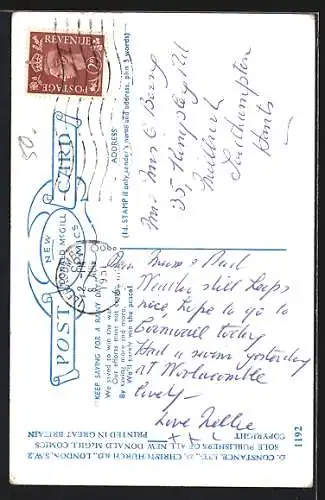 POSTAGE
REVENUE
2D
50.
POST CARD
NEW
DONALD McGILL
COMICS
KEEP SAVING FOR A RAINY DAY
We saved to win the war,
Our efforts must not cease,
By saving more and more,
We'll surely win the peace!
Dear Mum & Dad
Weather still keeps
nice, hope to go to
Cornwall today
Had a swim yesterday
at Woolacombe
lovely—
Love Nellie
x x x
ADDRESS
(1d. STAMP if only sender's name and address, plus 5 words)
Mr & Mrs C Berry
35, Kingsley Rd
Millbrook
Southampton
Hants
D. CONSTANCE, LTD., CHRISTCHURCH RD., LONDON, S.W.2
SOLE PUBLISHERS OF ALL NEW DONALD McGILL COMICS
COPYRIGHT PRINTED IN GREAT BRITAIN
1192